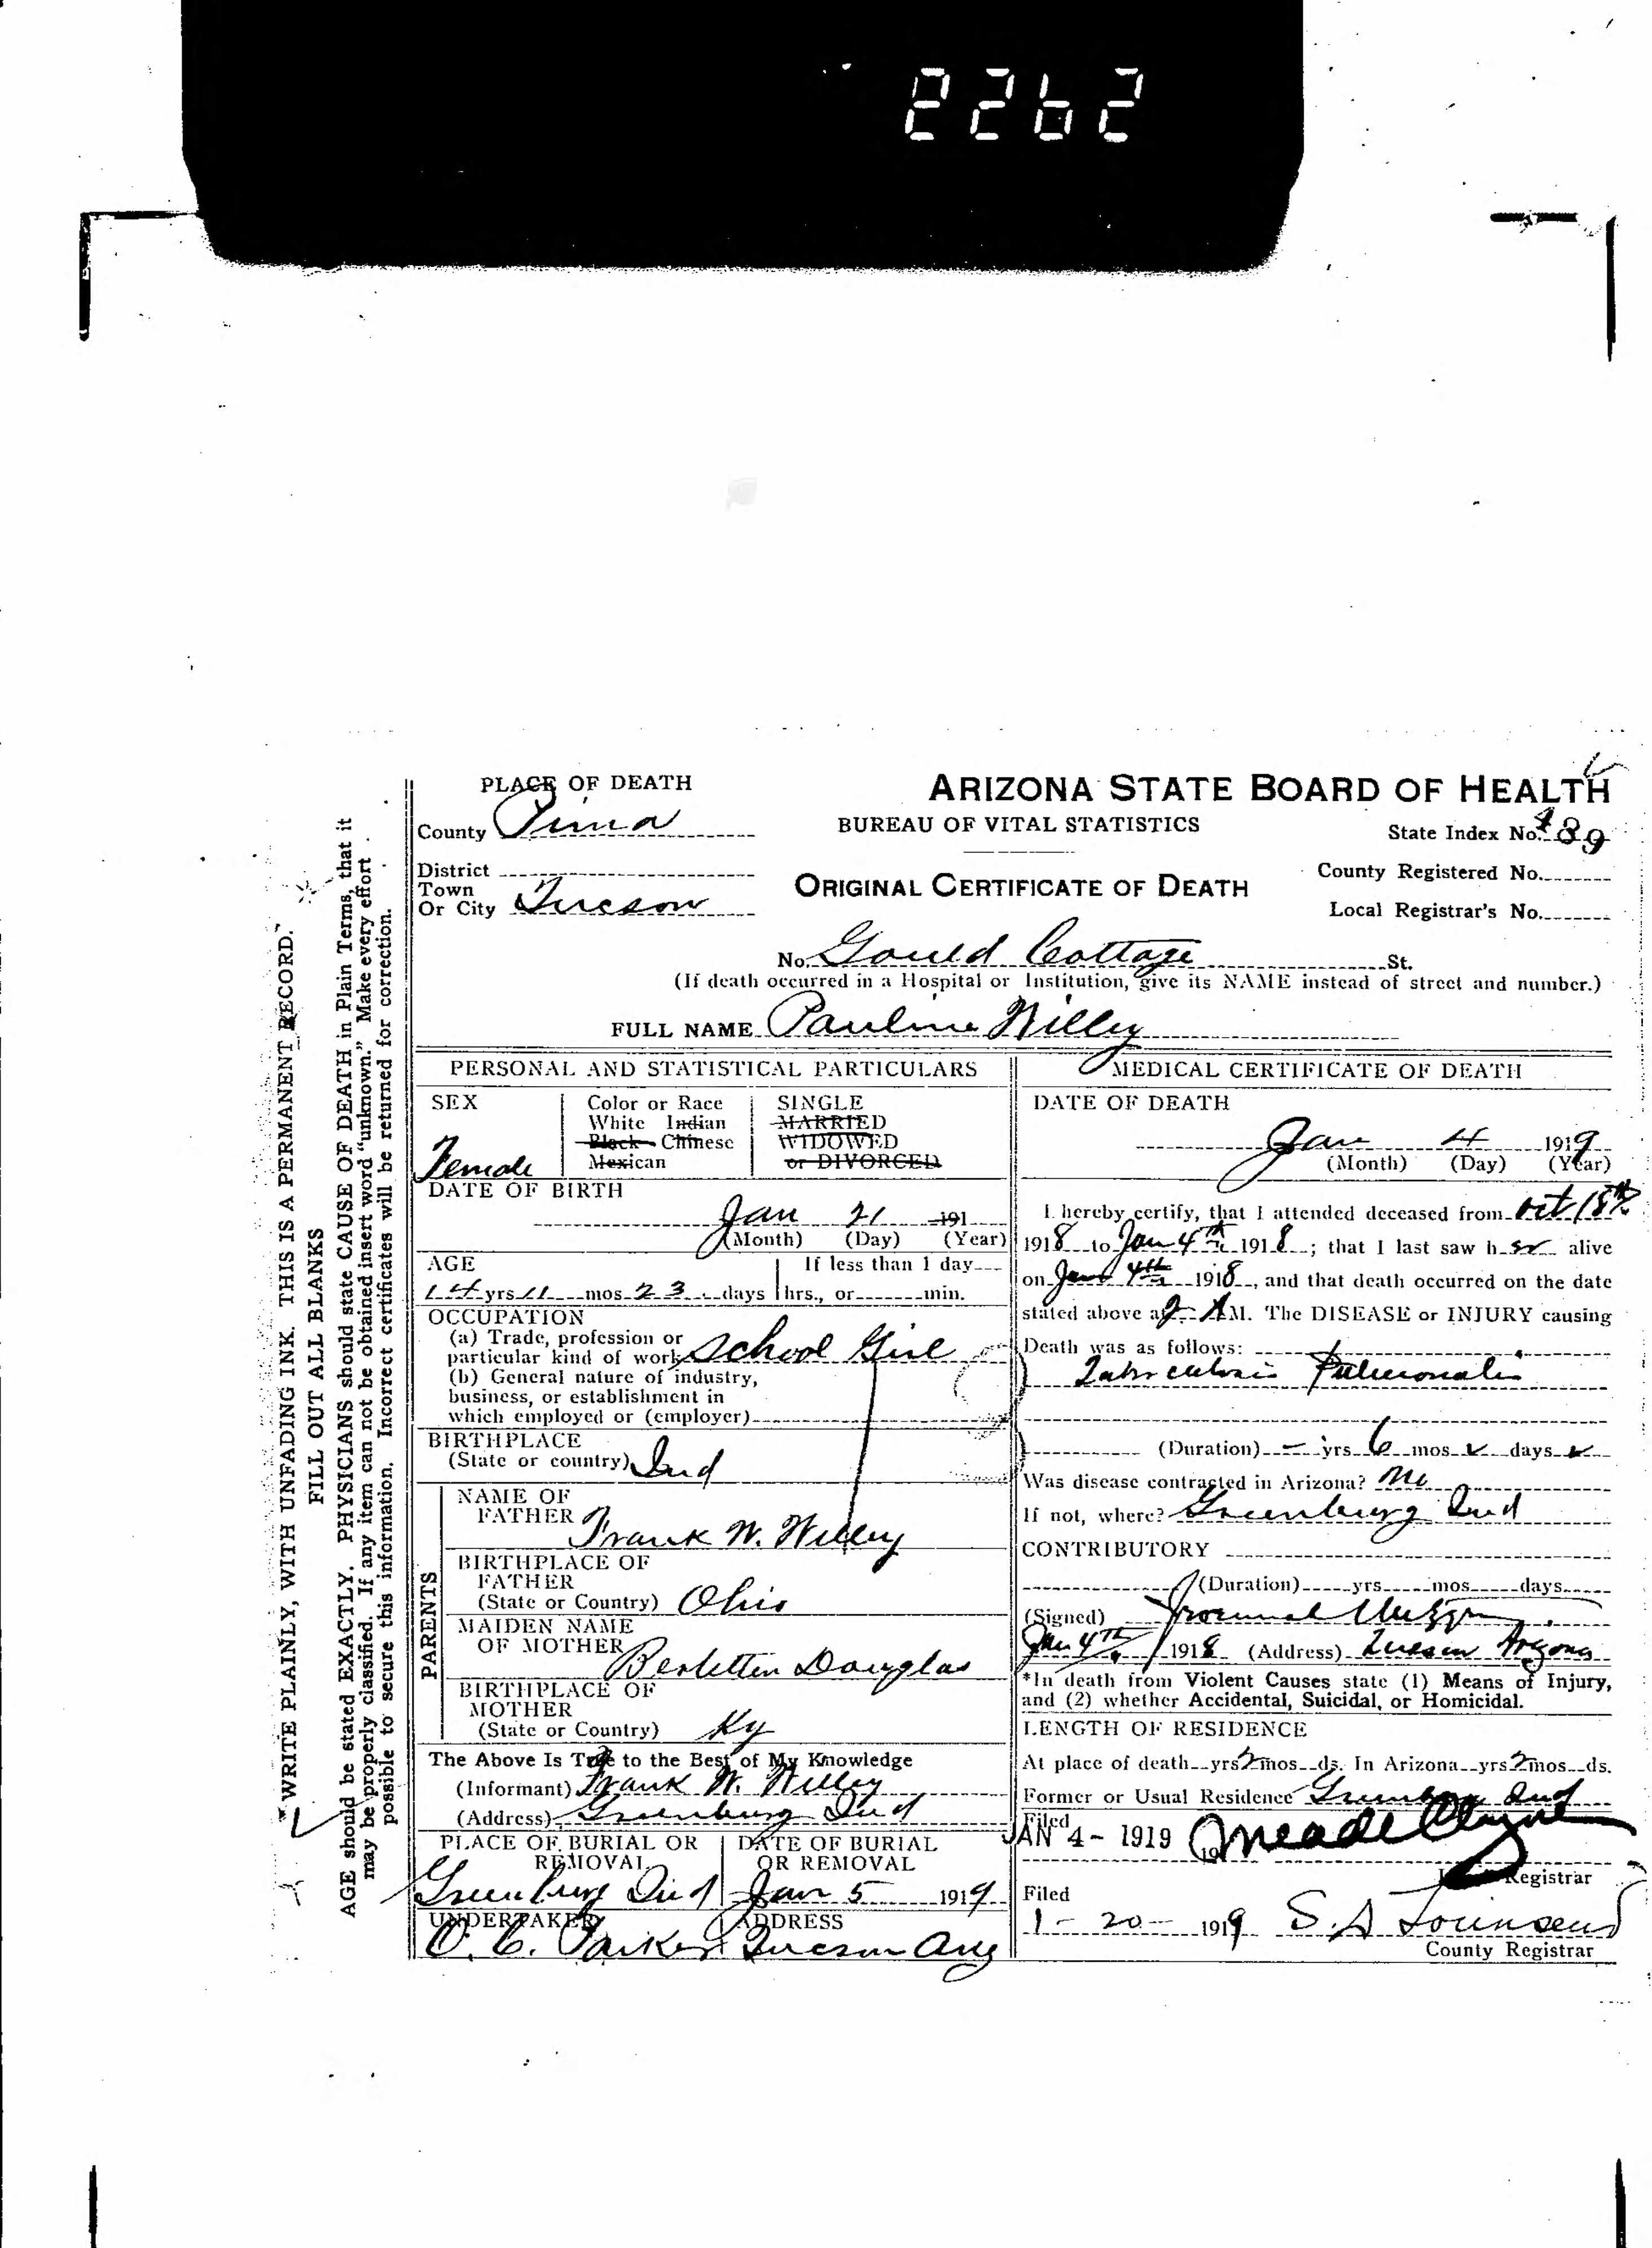 2262
PLACE OF DEATH
ARIZONA STATE BOARD OF HEALTH
County Pima
BUREAU OF VITAL STATISTICS
State Index No. 489
District
County Registered No.
Town
Or City Tucson
ORIGINAL CERTIFICATE OF DEATH
Local Registrar's No.
No. Gould Cottage St.
(If death occurred in a Hospital or Institution, give its NAME instead of street and number.)
FULL NAME Pauline Willey
PERSONAL AND STATISTICAL PARTICULARS
SEX
Female
Color or Race
White Indian
Black Chinese
Mexican
SINGLE
MARRIED
WIDOWED
or DIVORCED
DATE OF BIRTH
Jan 21 191
(Month) (Day) (Year)
AGE
14 yrs 11 mos 23 days
If less than 1 day
hrs., or min.
OCCUPATION
(a) Trade, profession or
particular kind of work School Girl
(b) General nature of industry,
business, or establishment in
which employed or (employer)
BIRTHPLACE
(State or country) Ind
PARENTS
NAME OF
FATHER Frank W. Willey
BIRTHPLACE OF
FATHER
(State or Country) Ohio
MAIDEN NAME
OF MOTHER Douglas
BIRTHPLACE OF
MOTHER
(State or Country) Ky
The Above Is True to the Best of My Knowledge
(Informant) Frank W. Willey
(Address) Greenburg Ind
PLACE OF BURIAL OR
REMOVAL
Greenburg Ind
DATE OF BURIAL
OR REMOVAL
Jan 5 1919
UNDERTAKER
O. C. Parker
ADDRESS
Tucson Ariz
MEDICAL CERTIFICATE OF DEATH
DATE OF DEATH
Jan 4 1919
(Month) (Day) (Year)
I hereby certify, that I attended deceased from Oct 18th
1918 to Jan 4th 1918; that I last saw her alive
on Jan 4th 1918, and that death occurred on the date
stated above at 2 AM. The DISEASE or INJURY causing
Death was as follows:
Tuberculosis Pulmonalis
(Duration) - yrs 6 mos days
Was disease contracted in Arizona? No
If not, where? Greenburg Ind
CONTRIBUTORY
(Duration) yrs mos days
(Signed)
Jan 4th 1918 (Address) Tucson Arizona
*In death from Violent Causes state (1) Means of Injury,
and (2) whether Accidental, Suicidal, or Homicidal.
LENGTH OF RESIDENCE
At place of death yrs 2 mos ds. In Arizona yrs 2 mos ds.
Former or Usual Residence Greenburg Ind
Filed
JAN 4 - 1919 Meade Clyne
Registrar
Filed
1 - 20 - 1919 S. A. Townsend
County Registrar
WRITE PLAINLY, WITH UNFADING INK. THIS IS A PERMANENT RECORD.
FILL OUT ALL BLANKS
AGE should be stated EXACTLY. PHYSICIANS should state CAUSE OF DEATH in Plain Terms, that it
may be properly classified. If any item can not be obtained insert word "unknown." Make every effort
possible to secure this information. Incorrect certificates will be returned for correction.